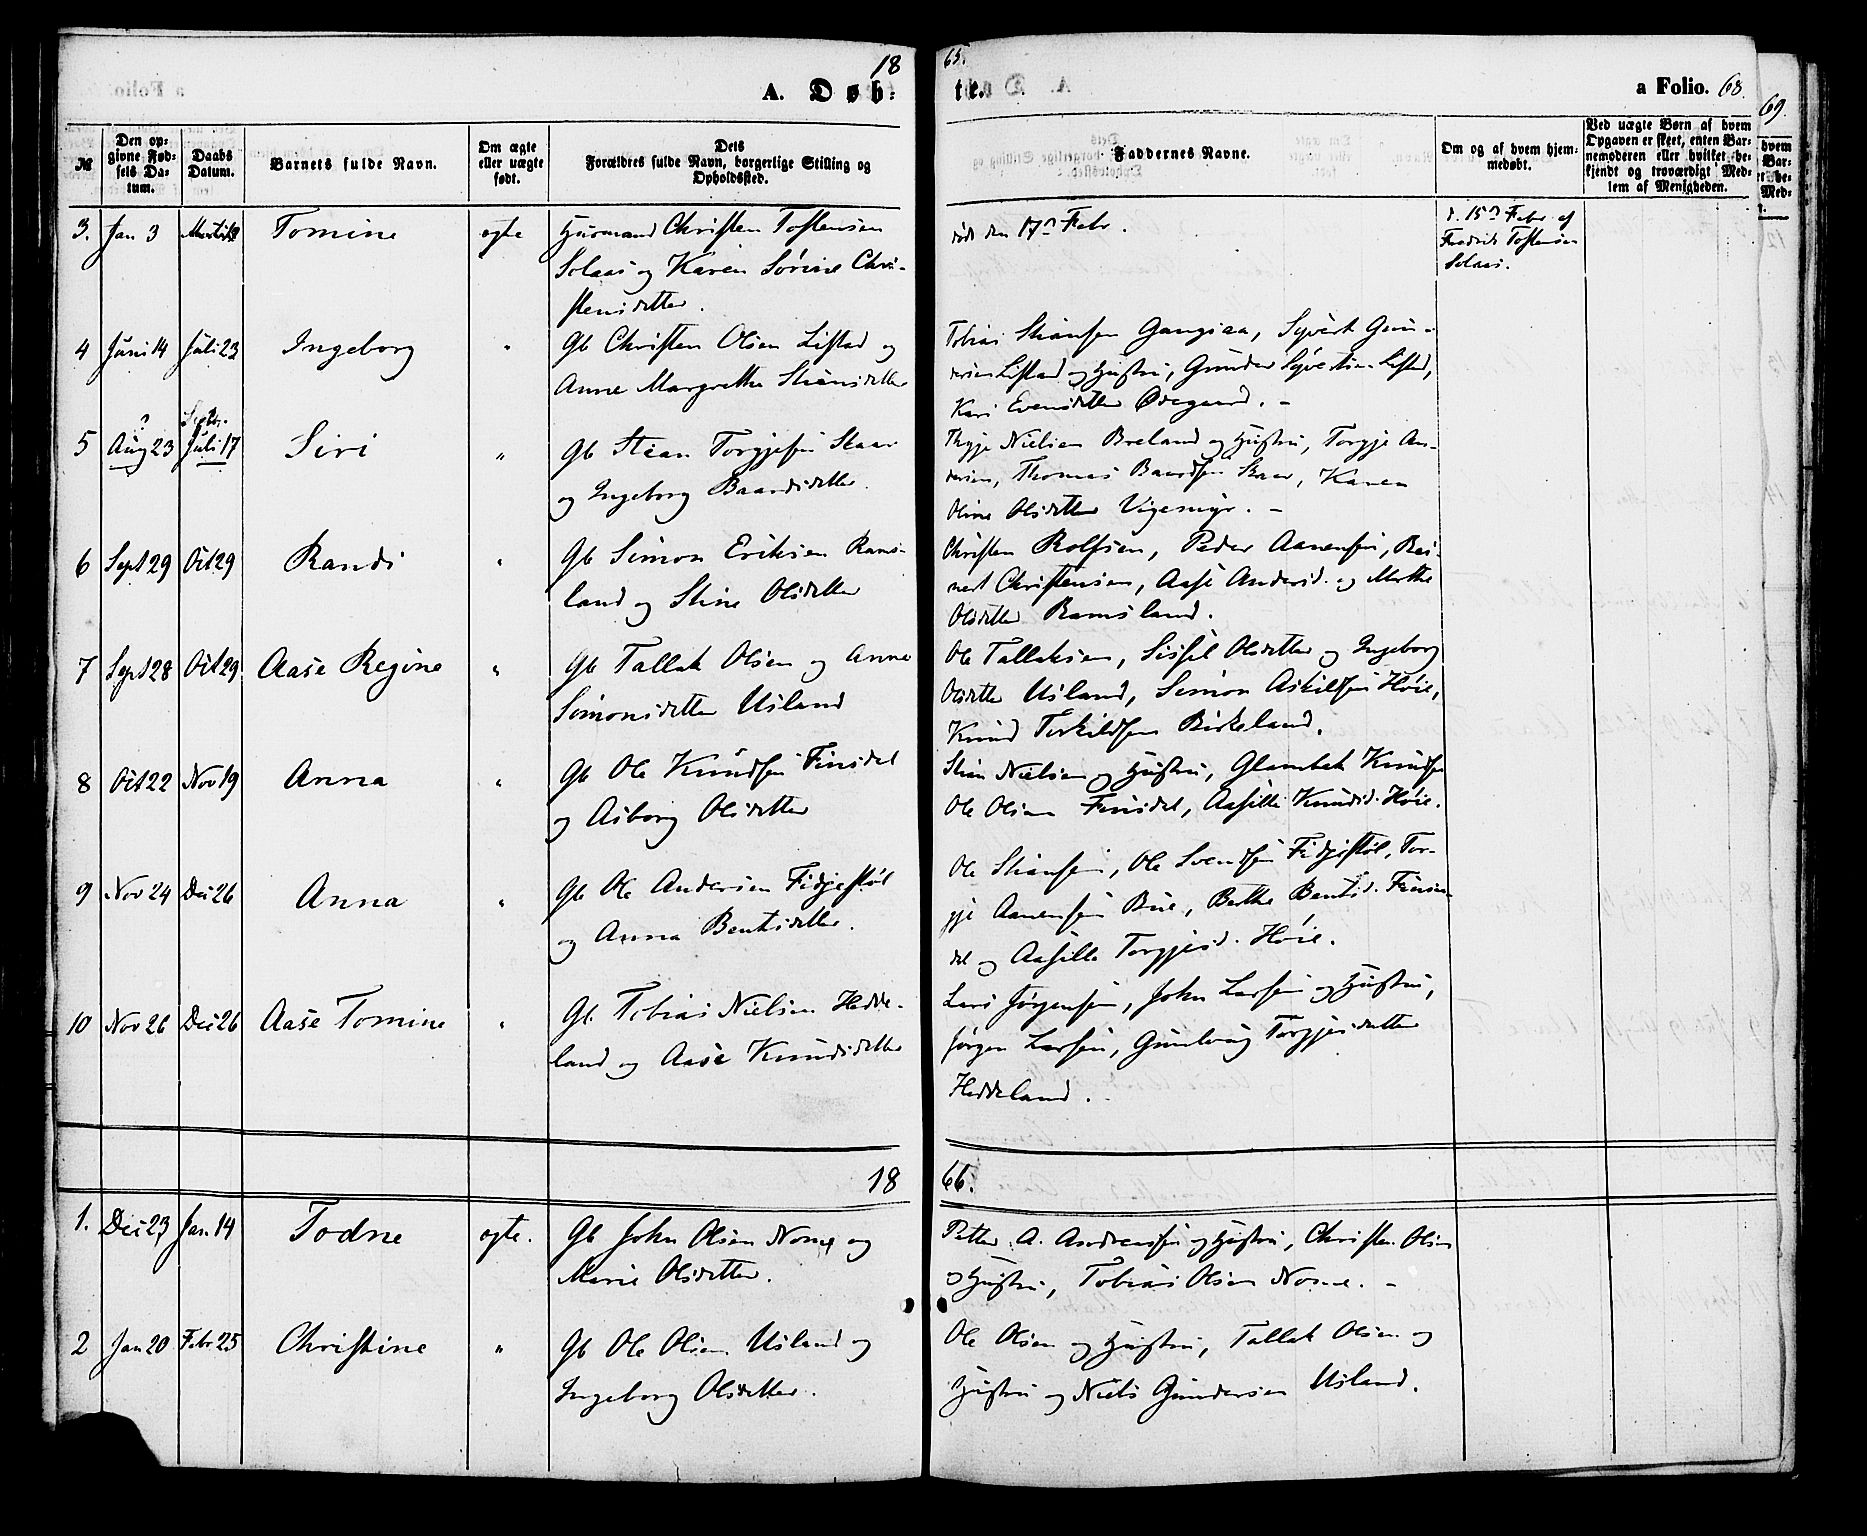 18
65.
A. Døb-
te.
a Folio. 68.
69.
№
Den op-
givne Fød-
sels Da-
tum.
Daabs
Datum.
Barnets fulde Navn.
Om ægte
eller uægte
født.
Dets
Forældres fulde Navn, borgerlige Stilling og
Opholdssted.
Faddernes Navne.
Om og af hvem hjem-
medøbt.
Ved uægte Børn af hvem
Opgaven er skeet, enten Bar-
nemoderen eller hvilket be-
kjendt og troværdigt Med-
lem af Menigheden.
3. Jan 3 Tomine ægte Huusmand Christen Tostensen
Solaas og Karen Sørine Chri-
stensdatter.
død den 17de Febr.
d. 15de Febr af
Fredrik Tostensen
Solaas.
4 Juni 14 Juli 23 Ingeborg " Gb Christen Olsen Listad og
Anne Margrethe Stiansdatter
Tobias Stiansen Gangsaa, Syvert Gun-
dersen Listad og Hustru, Gunder Syvertsen Listad,
Kari Evensdatter Ødegaard. -
5 Aug 23 Septbr. Juli 17 Siri " Gb Stian Torgjesen Skaar
og Ingeborg Baardsdatter.
Nielsen Breland og Hustru, Torgje An-
dersen, Thomas Baardsen Skaar, Karen
Oline Olsdatter Vigemyr. -
6 Sept 29 Oct 29 Randi " Gb Simon Eriksen Rams-
land og Stine Olsdatter
Christen Rolfsen, Peder Aanensen, Rei-
nert Christensen, Aase Andersd. og Marthe
Olsdatter Ramsland.
7 Sept 28 Oct 29 Aase Regine " Gb Tallak Olsen og Anne
Simonsdatter Usland
Ole Tallaksen, Sissel Olsdatter og Ingeborg
Olsdatter Usland, Simon Askildsen Høie,
Knud Terkildsen Birkeland.
8 Oct 22 Nov 19 Anna " Gb Ole Knudsen Finsdal
og Asborg Olsdatter
Stian Nielsen og Hustru, Glambek Knudsen
Ole Olsen Finsdal, Aasille Knudsd. Høie.
9 Nov 24 Dec 26 Anna " Gb Ole Andersen Fidjestøl
og Anna Bentsdatter.
Ole Stiansen, Ole Svendsen Fidjestøl, Tor-
gje Aanensen Bue, Berthe Bentsd. Finsn-
dal og Aasille Torgjesd. Høie.
10 Nov 26 Dec 26 Aase Tomine " Gb. Tobias Nielsen Hedde-
land og Aase Knudsdatter
Lars Jørgensen, John Larsen og Hustru,
Jørgen Larsen, Gunlaug Torgjesdatter
Heddeland.
18
66.
1. Dec 23 Jan. 14 Todne ægte. Gb John Olsen Nome og
Marie Olsdatter.
Petter A. Andreassen og Hustru, Christen Olsen
og Hustru, Tobias Olsen Nome. -
2 Jan 20 Febr 25 Christine " Gb Ole Olsen Usland og
Ingeborg Olsdatter.
Ole Olsen og Hustru, Tallak Olsen og
Hustru og Niels Gundersen Usland.